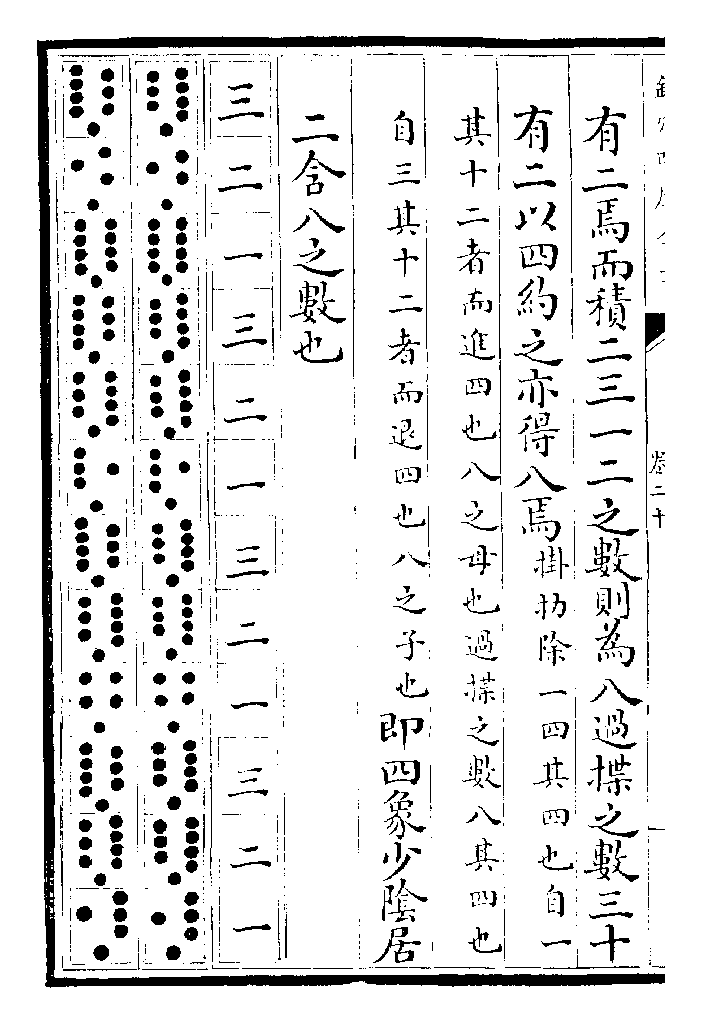 卷二十
有二焉而積二三一二之數則為八過揲之數三十
有二以四約之亦得八焉掛扐除一四其四也自一
其十二者而進四也八之母也過揲之數八其四也
自三其十二者而退四也八之子也即四象少陰居
二含八之數也
三二一三二一三二一三二一